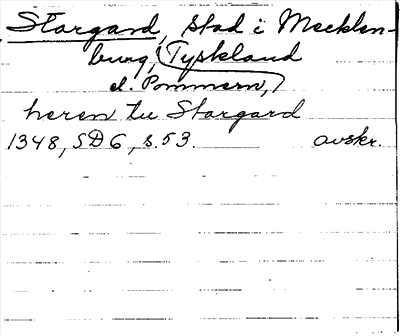 Stargard, stad i Mecklen-
burg, Tyskland
el. Pommern,
heren tu Stargard
1348, SD 6, s. 53. avskr.